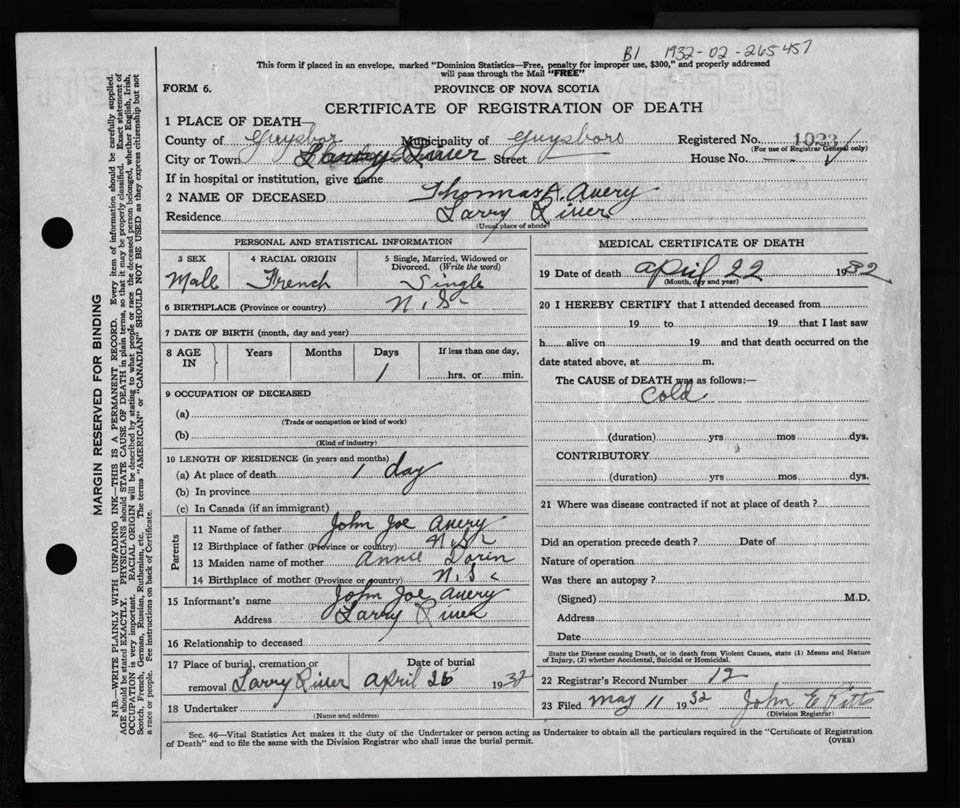 B1 1932-02-265457
This form if placed in an envelope, marked "Dominion Statistics—Free, penalty for improper use, $300," and properly addressed
will pass through the Mail "FREE"
FORM 6.
PROVINCE OF NOVA SCOTIA
CERTIFICATE OF REGISTRATION OF DEATH
1 PLACE OF DEATH—
County of Guysbor Municipality of Guysboro Registered No. 1023
(For use of Registrar General only)
City or Town Larry's River Street House No.
If in hospital or institution, give name
2 NAME OF DECEASED Thomas A. Avery
Residence Larry River
(Usual place of abode)
PERSONAL AND STATISTICAL INFORMATION
3 SEX 4 RACIAL ORIGIN 5 Single, Married, Widowed or Divorced. (Write the word)
Mall French Single
6 BIRTHPLACE (Province or country) N. S.
7 DATE OF BIRTH (month, day and year)
8 AGE IN Years Months Days If less than one day,
1 hrs. or min.
9 OCCUPATION OF DECEASED
(a)
(Trade or occupation or kind of work)
(b)
(Kind of industry)
10 LENGTH OF RESIDENCE (in years and months)
(a) At place of death 1 day
(b) In province
(c) In Canada (if an immigrant)
Parents
11 Name of father John Joe Avery
12 Birthplace of father (Province or country) N. S.
13 Maiden name of mother Annie Dorin
14 Birthplace of mother (Province or country) N. S.
15 Informant's name John Joe Avery
Address Larry River
16 Relationship to deceased
17 Place of burial, cremation or Date of burial
removal Larry River April 26 1932
18 Undertaker
(Name and address)
MEDICAL CERTIFICATE OF DEATH
19 Date of death April 22 1932
(Month, day and year)
20 I HEREBY CERTIFY that I attended deceased from
19 to 19 that I last saw
h alive on 19 and that death occurred on the
date stated above, at m.
The CAUSE of DEATH was as follows:—
Cold
(duration) yrs mos dys.
CONTRIBUTORY
(duration) yrs mos dys.
21 Where was disease contracted if not at place of death?
Did an operation precede death? Date of
Nature of operation
Was there an autopsy?
(Signed) M.D.
Address
Date
State the Disease causing Death, or in death from Violent Causes, state (1) Means and Nature
of Injury, (2) whether Accidental, Suicidal or Homicidal.
22 Registrar's Record Number 12
23 Filed May 11 1932 John E Pitts
(Division Registrar)
Sec. 46—Vital Statistics Act makes it the duty of the Undertaker or person acting as Undertaker to obtain all the particulars required in the "Certificate of Registration
of Death" and to file the same with the Division Registrar who shall issue the burial permit.
(OVER)
MARGIN RESERVED FOR BINDING
N.B.—WRITE PLAINLY WITH UNFADING INK—THIS IS A PERMANENT RECORD. Every item of information should be carefully supplied.
AGE should be stated EXACTLY. PHYSICIANS should STATE CAUSE OF DEATH in plain terms, so that it may be properly classified. Exact statement of
OCCUPATION is very important. RACIAL ORIGIN will be described by stating to what people or race the deceased person belonged, whether English, Irish,
Scotch, French, German, Russian, Ruthenian, etc. The terms "AMERICAN" or "CANADIAN" SHOULD NOT BE USED as they express citizenship but not
a race or people. See instructions on back of Certificate.